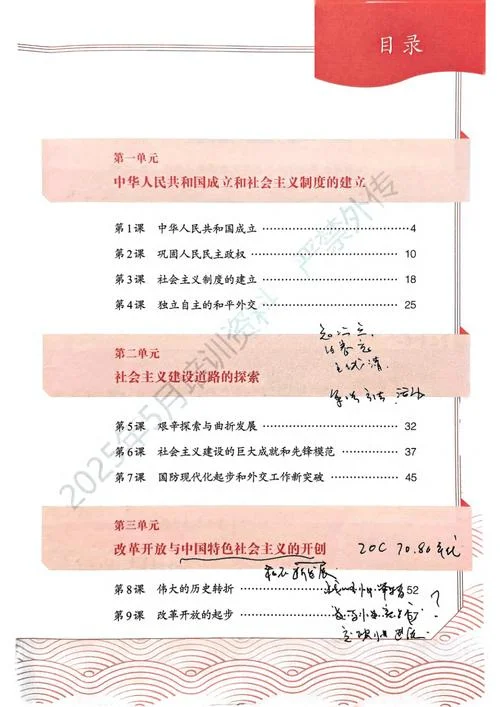 目录
第一单元
中华人民共和国成立和社会主义制度的建立
第1课 中华人民共和国成立 ⋯⋯⋯⋯⋯⋯⋯⋯ 4
第2课 巩固人民民主政权 ⋯⋯⋯⋯⋯⋯⋯⋯ 10
第3课 社会主义制度的建立 ⋯⋯⋯⋯⋯⋯⋯⋯ 18
第4课 独立自主的和平外交 ⋯⋯⋯⋯⋯⋯⋯⋯ 25
第二单元
社会主义建设道路的探索
第5课 艰辛探索与曲折发展 ⋯⋯⋯⋯⋯⋯⋯⋯ 32
第6课 社会主义建设的巨大成就和先锋模范 ⋯⋯⋯⋯ 37
第7课 国防现代化起步和外交工作新突破 ⋯⋯⋯⋯ 45
第三单元
改革开放与中国特色社会主义的开创
20C 70.80年代
第8课 伟大的历史转折 ⋯⋯⋯⋯⋯⋯⋯⋯ 52
第9课 改革开放的起步 ⋯⋯⋯⋯⋯⋯⋯⋯
?
2025年5月培训资料 严禁外传